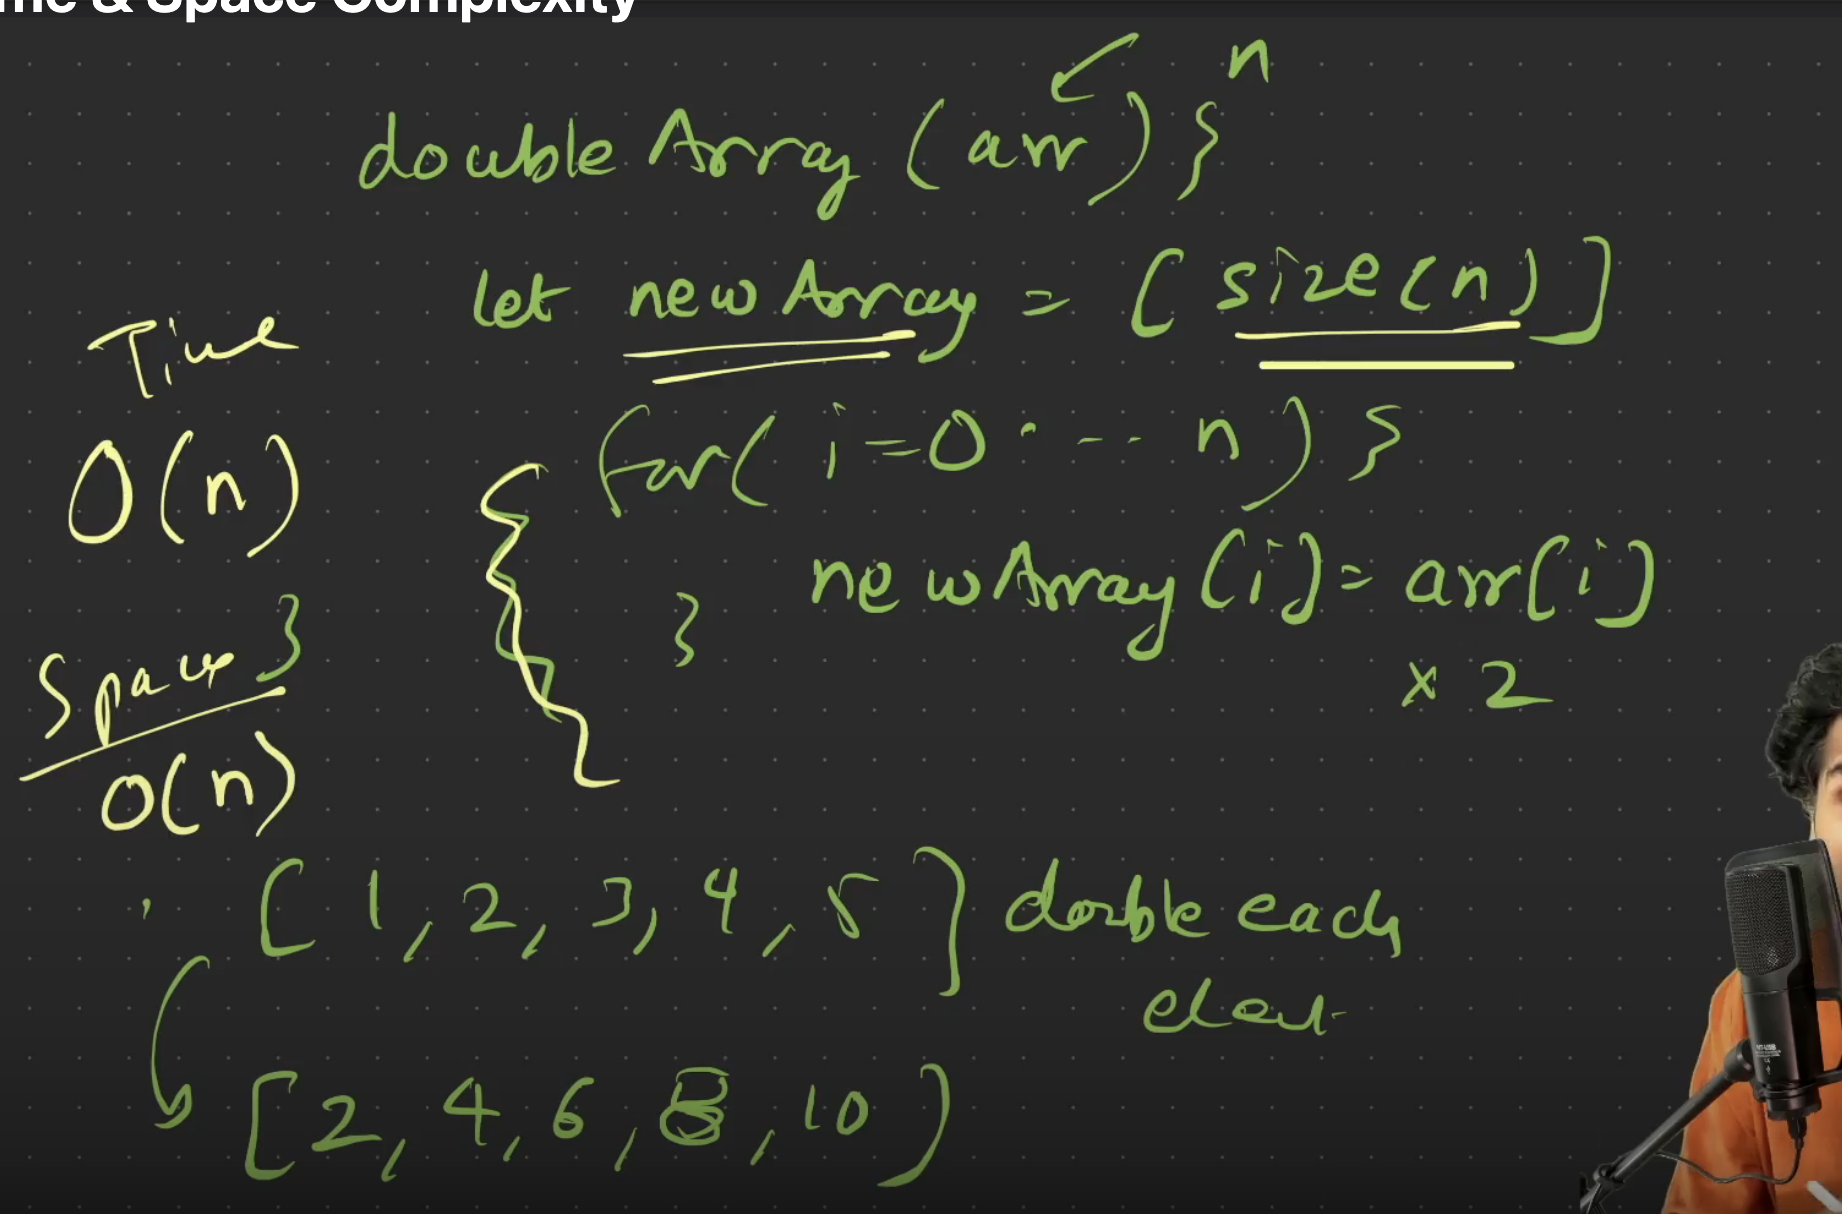 & Space Complexity
n
double Array (arr) }
let new Array = [ size(n) ]
Time
O(n)
for( i=0 . - - - n) }
newArray[i] = arr[i]
x 2
}
}
Space
O(n)
[ 1, 2, 3, 4, 5 ] double each
[ 2, 4, 6, 8, 10 ]